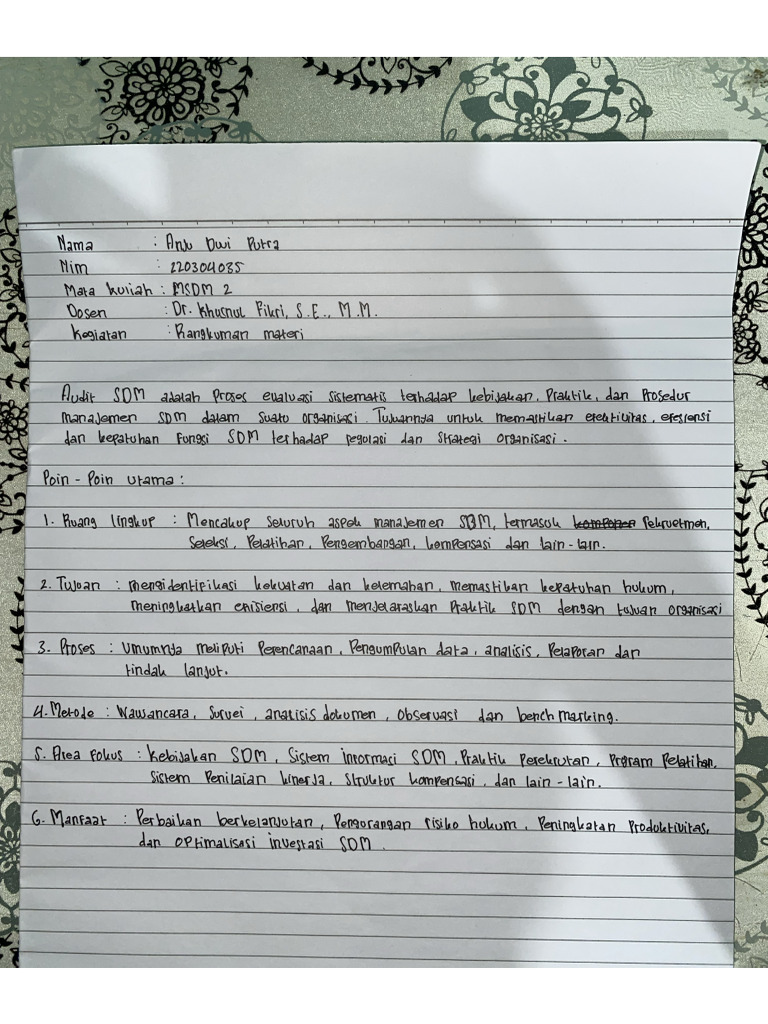 Nama : Anju Dwi Putra
Nim : 220304035
Mata kuliah : MSDM 2
Dosen : Dr. Khusnul Fikri, S.E., M.M.
Kegiatan : Rangkuman materi
Audit SDM adalah Proses evaluasi sistematis terhadap kebijakan, Praktik, dan Prosedur
manajemen SDM dalam suatu organisasi. Tujuannya untuk memastikan efektivitas, efesiensi
dan kepatuhan fungsi SDM terhadap regulasi dan strategi organisasi.
Poin - Poin utama :
1. Ruang lingkup : Mencakup seluruh aspek manajemen SDM, termasuk rekruetmen,
Seleksi, Pelatihan, Pengembangan, kompensasi dan lain-lain.
2. Tujuan : mengidentifikasi kekuatan dan kelemahan, memastikan kepatuhan hukum,
meningkatkan efisiensi, dan menjelaraskan Praktik SDM dengan tujuan organisasi
3. Proses : Umumnya meliputi Perencanaan, Pengumpulan data, analisis, Pelaporan dan
tindak lanjut.
4. Metode : Wawancara, Survei, analisis dokumen, Observasi dan bench marking.
5. Area Fokus : Kebijakan SDM, Sistem informasi SDM, Praktik Perekrutan, Program Pelatihan,
Sistem Penilaian kinerja, Struktur kompensasi, dan lain-lain.
6. Manfaat : Perbaikan berkelanjutan, Pengurangan risiko hukum, Peningkatan Produktivitas,
dan optimalisasi investasi SDM.